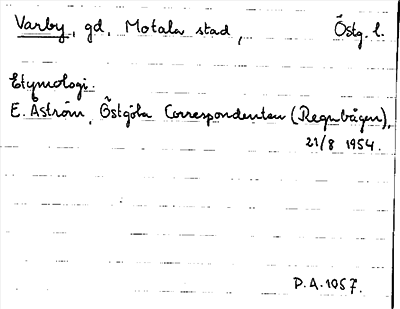 Varby, gd, Motala stad, Östg. l.
Etymologi.
E. Åström, Östgöta Correspondenten (Regnbågen),
21/8 1954.
P.A. 1957.